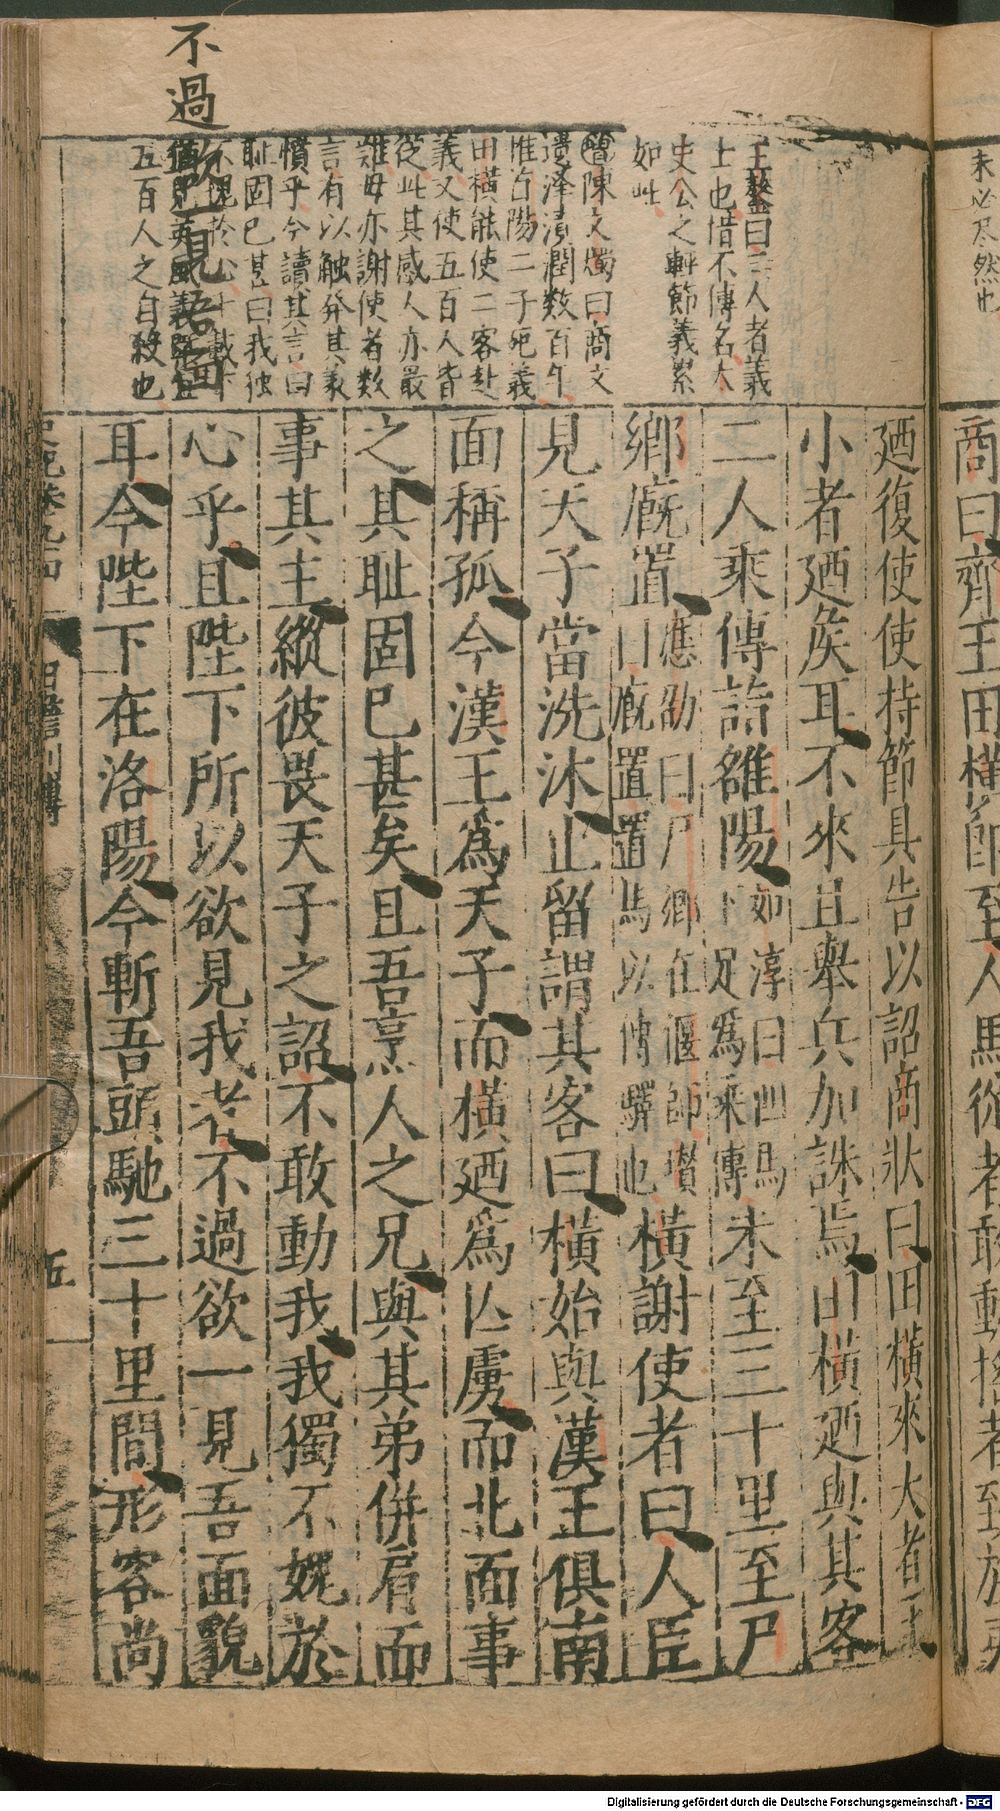 未必尽然也
商曰齊王田橫即至人馬從者敢動搖者至族夷
王鏊曰三人者義
士也惜不傳名太
史公之軒節義累
如此
陳文燭曰商文
遺澤漬潤数百年
惟首陽二子死義
田橫能使二客赴
義又使五百人皆
從此其感人亦最
雖毋亦謝使者数
言有以触發其義
憤乎今讀其言曰
耻固已甚曰我独
不愧於心
五百人之自殺也
不過欲一見吾面
廼復使使持節具告以詔商狀曰田橫來大者王
小者廼侯耳不來且舉兵加誅焉田橫廼與其客
二人乘傳詣雒陽如淳曰四馬下足爲乘傳未至三十里至尸
鄉廐置應劭曰尸鄉在偃師瓚曰廐置置馬以傳驛也橫謝使者曰人臣
見天子當洗沐止留謂其客曰橫始與漢王俱南
面稱孤今漢王爲天子而橫廼爲亾虜而北面事
之其耻固已甚矣且吾烹人之兄與其弟併肩而
事其主縱彼畏天子之詔不敢動我我獨不媿於
心乎且陛下所以欲見我者不過欲一見吾面貌
耳今陛下在洛陽今斬吾頭馳三十里間形容尚
五
Digitalisierung gefördert durch die Deutsche Forschungsgemeinschaft - DFG